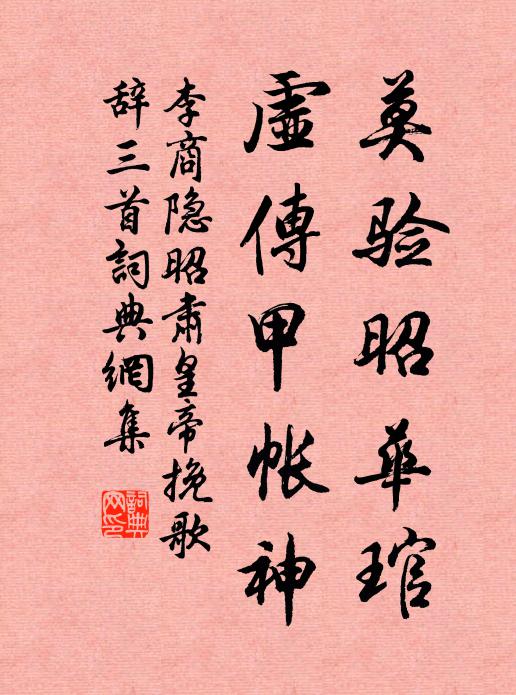 莫验昭华琯
虚傳甲帐神
李商隐昭肃皇帝挽歌
辞三首詞典網集
詞典
网印